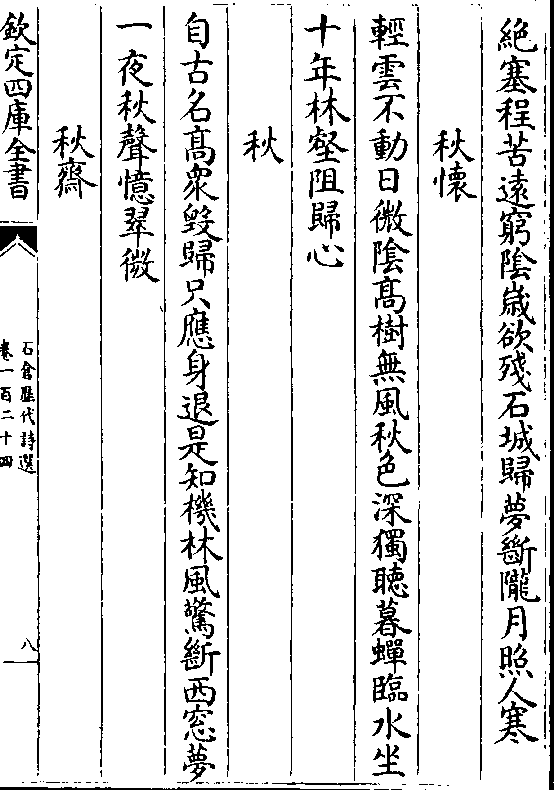 絶塞程苦遠窮隂嵗欲殘石城歸夢斷隴月照人寒
秋懷
輕雲不動日微隂髙樹無風秋色深獨聽暮蟬臨水坐
十年林壑阻歸心
秋
自古名髙衆毀歸只應身退是知機林風驚斷西窓夢
一夜秋聲憶翠微
秋齋
欽定四庫全書
石倉歷代詩選
卷一百二十四
八